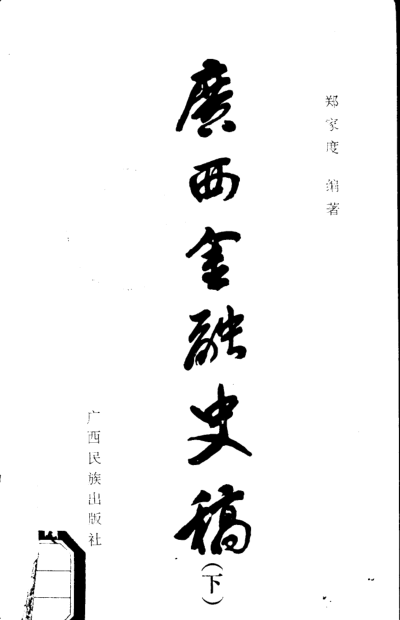 郑家度 编著
廣西金融史稿(下)
广西民族出版社